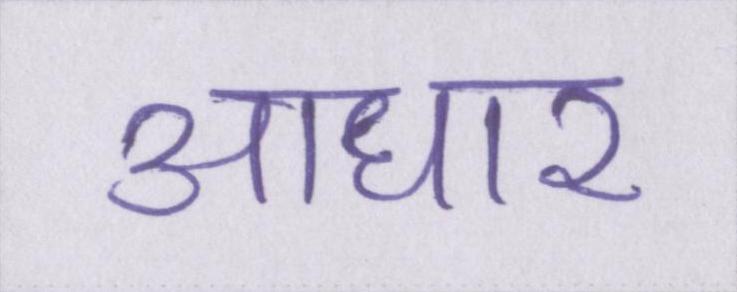 आधार